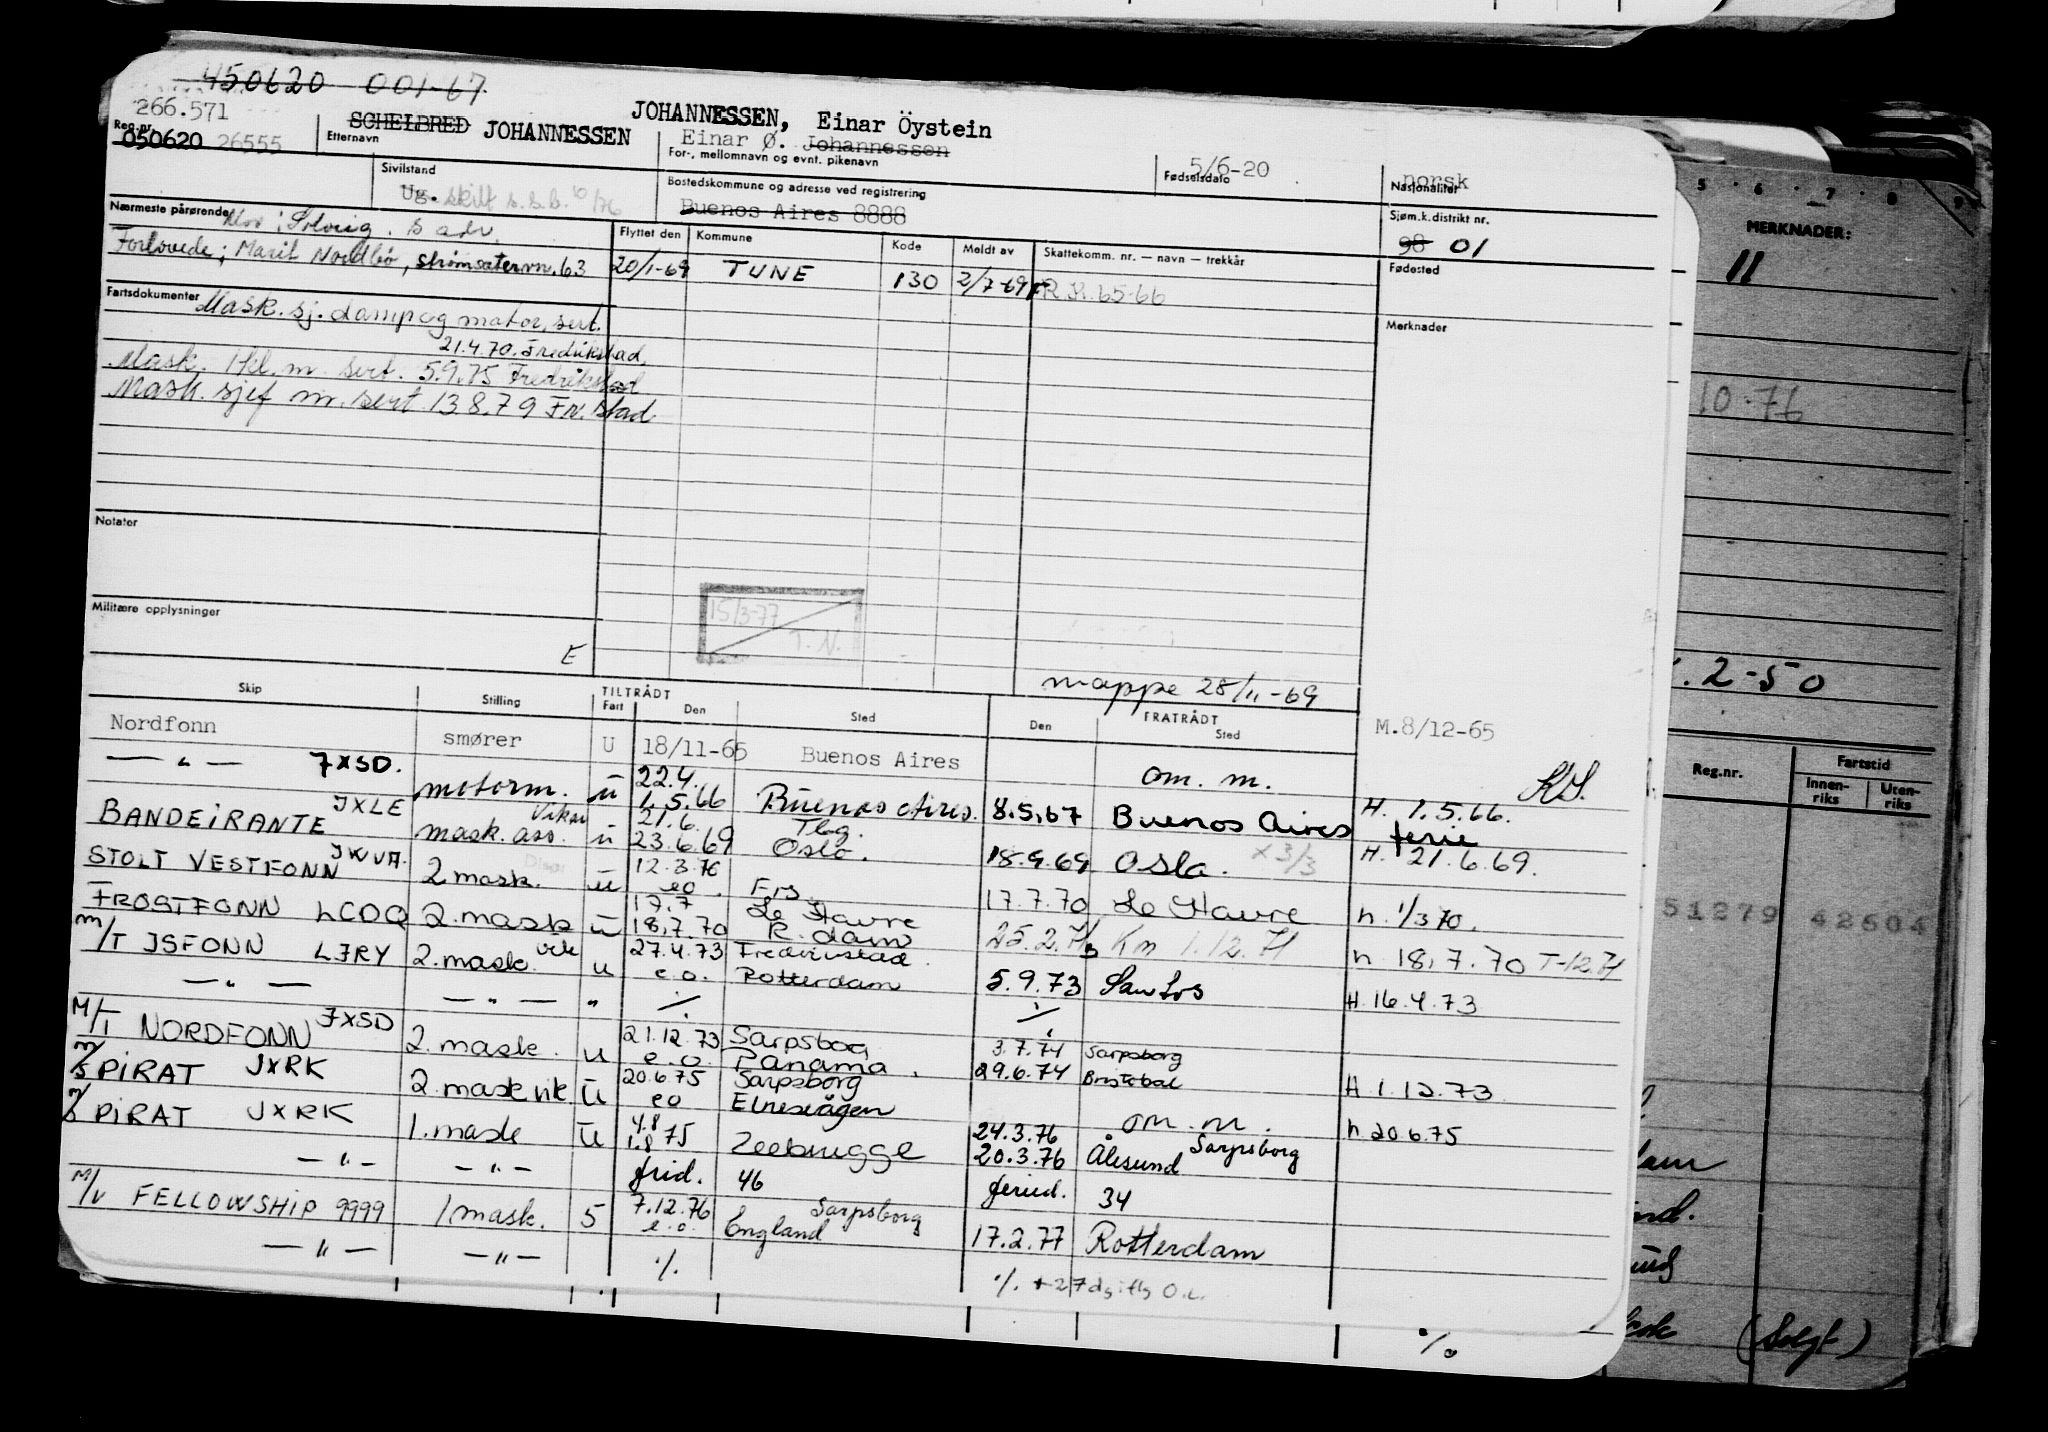 450620 001-67
266.571
Reg.nr. 050620 26555
Etternavn SCHELBRED JOHANNESSEN
JOHANNESSEN, Einar Öystein
Einar Ø. Johannessen
For-, mellomnavn og evnt. pikenavn
5/6-20
Fødselsdato
norsk
Nasjonalitet
Sivilstand
Ug. skilt s.s.b. 10/76
Bostedskommune og adresse ved registrering
Buenos Aires 8888
Sjøm.k.distrikt nr.
98 01
Nærmeste pårørende
Mor: Solveig. s adr.
Forlovede; Marit Nordbö, strömsätervn. 63
Flyttet den Kommune Kode Meldt av Skattekomm. nr. — navn — trekkår
20/1-69 TUNE 130 2/7-69 R.K. 65-66
Fødested
Fartsdokumenter
Mask. sj. damp og motor, sert.
21.4.70. Fredrikstad
Mask. 1 kl. m. sert. 5.9.75 Fredrikstad
Mask. sjef m. sert 13 8.79 Fr. stad
Merknader
Notater
15/3-77
T. N.
Militære opplysninger
E
mappe 25/11-69
Skip Stilling TILTRÅDT Fart Den Sted FRATRÅDT Den Sted
Nordfonn smører U 18/11-65 Buenos Aires M.8/12-65
— " — JXSD. motorm. u 22.4. 1.5.66 Buenos Aires. 8.5.67 om. m. Buenos Aires H. 1.5.66. ferie
BANDEIRANTE JXLE mask. ass. Vikar u 21.6. 23.6.69 Tbg. Oslo. 18.9.69 Osla. x 3/3 H. 21.6.69.
STOLT VESTFONN JWVA. 2 mask. u 12.3.70 eo. Frs. 17.7.70 Le Havre h 1/3 70.
FROSTFONN LCDQ 2. mask u 17.7 18.7.70 Le Havre R. dam 25.2.71 Km 1.12.71 h 18.7.70 T-12.71
M/T ISFONN LJRY 2. mask. vik u 27.4.73 e.o. Fredrikstad. Rotterdam 5.9.73 Santos H. 16.4.73
— " — — " — " ./. ./.
M/T NORDFONN JXSD 2. mask. u 21.12.73 e.o. Sarpsborg Panama. 3.7.74 Sarpsborg 29.6.74 Bristobal H 1.12.73
M/S PIRAT JXRK 2. mask vik u 20.6 75 eo Sarpsborg Elnesvågen om. m. h 20.6.75
M/S PIRAT JXRK 1. mask u 4.8 1.8 75 Zeebrugge 24.3.76 20.3.76 Sarpsborg Ålesund
— " — — " — frid. 46 feried. 34
M/V FELLOWSHIP 9999 1 mask. 5 7.12.76 e.o. Sarpsborg England 17.2.77 Rotterdam
— " — — " — ./. ./. + 27 dg
KS.
./.
5 6 7 8 9
MERKNADER:
11
10.76
2-50
Reg.nr. Fartstid
Innen-riks Uten-riks
51279 42604
(Solgt)